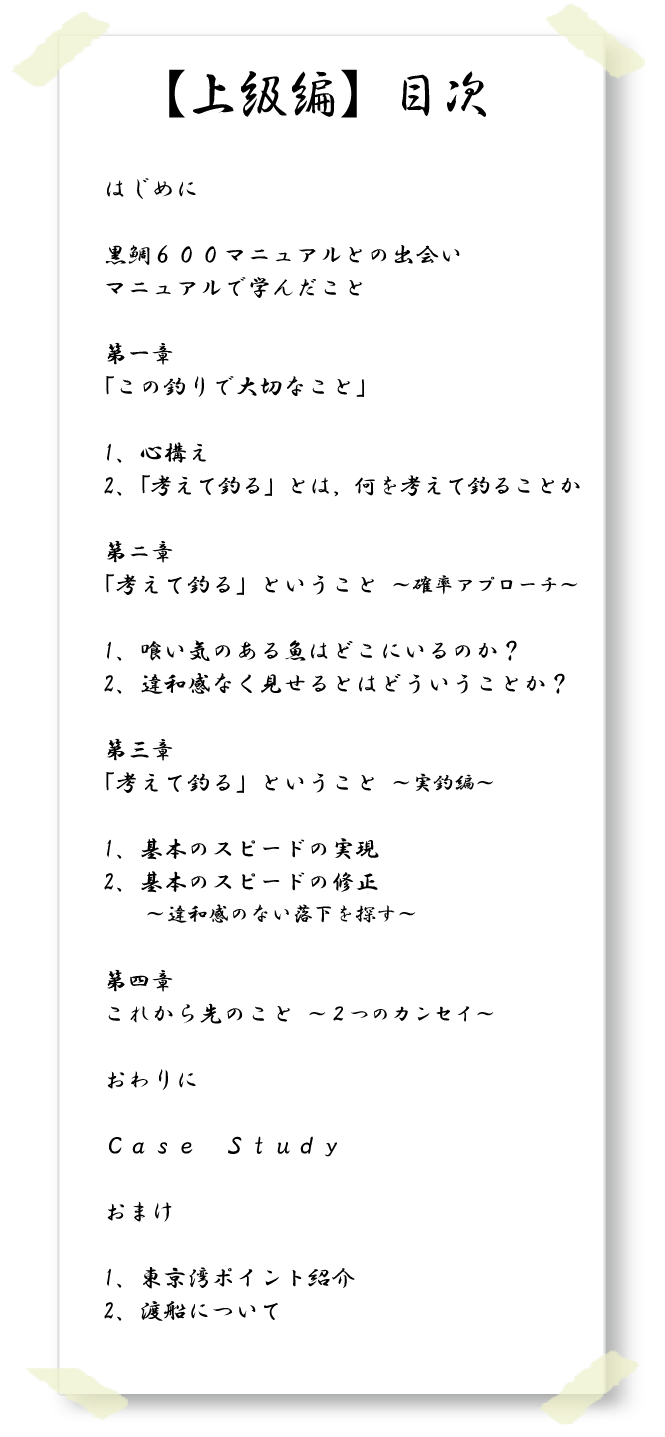 【上級編】目次
はじめに
黒鯛６００マニュアルとの出会い
マニュアルで学んだこと
第一章
「この釣りで大切なこと」
1、心構え
2、「考えて釣る」とは，何を考えて釣ることか
第二章
「考えて釣る」ということ ～確率アプローチ～
1、喰い気のある魚はどこにいるのか？
2、違和感なく見せるとはどういうことか？
第三章
「考えて釣る」ということ ～実釣編～
1、基本のスピードの実現
2、基本のスピードの修正
～違和感のない落下を探す～
第四章
これから先のこと ～２つのカンセイ～
おわりに
Ｃａｓｅ　Ｓｔｕｄｙ
おまけ
1、東京湾ポイント紹介
2、渡船について